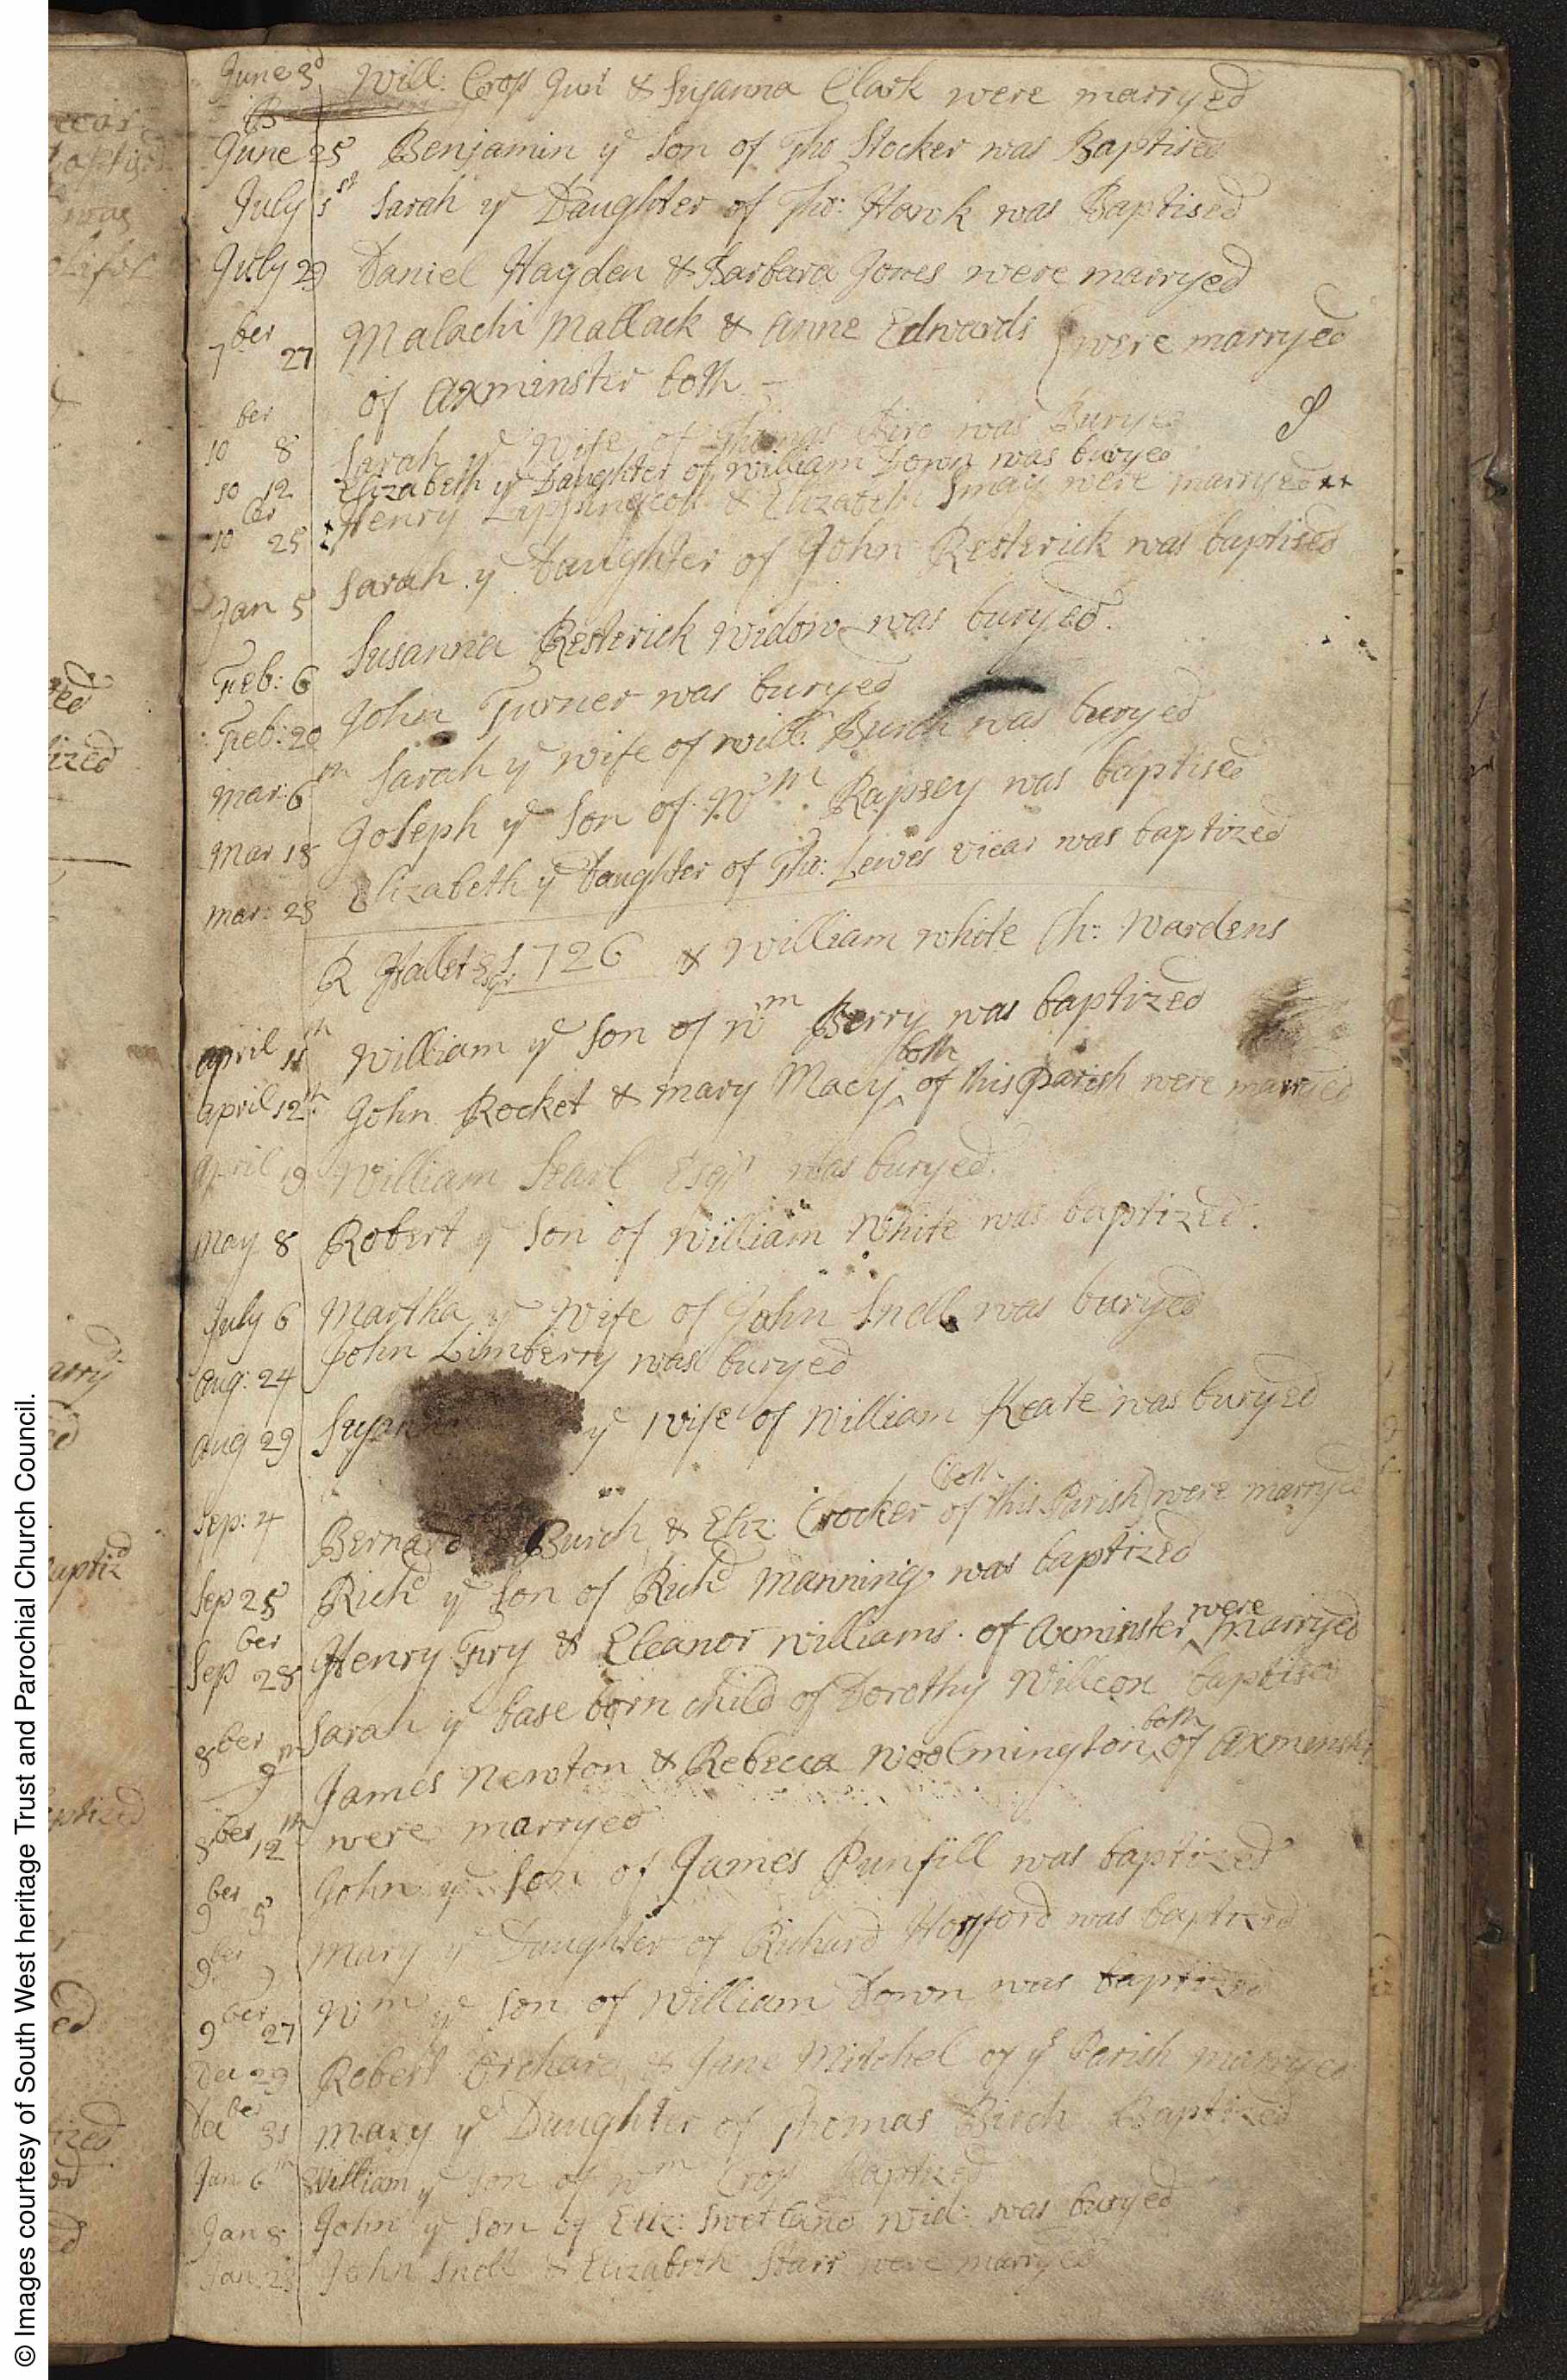 June 3d Will: Cross Junr & Susanna Clark were marryed
June 25 Benjamin ye Son of Tho Stocker was Baptised
July 1st Sarah ye Daughter of Tho: Hawk was Baptised
July 29 Daniel Hagden & Barbara Jones were marryed
7ber 27 Malachi Mallack & Anne Edwards } were marryed
of Axminster both
10ber 8 Sarah ye Wife of was Burye
10 12 Elizabeth ye Daughter of William Down was buryed
10ber 25 Henry Lippingcott & Elizabeth Smay were marryed
Jan 5 Sarah ye Daughter of John Resterick was baptised
Feb: 6 Susanna Resterick Widow was buryed.
Feb: 20 John Turner was buryed
Mar: 6th Sarah ye wife of Will: Burch was buryed
Mar 18 Joseph ye Son of Wm Rapsey was baptised
Mar: 25 Elizabeth ye Daughter of Tho: Lewes vicar was baptized
R Hallet Esqr. 1726 & William White Ch: Wardens
April 11th William ye Son of Wm Berry was baptized
April 12th John Rocket & Mary Macy both of this Parish were married
April 19 William Searl Esqr was buryed.
May 8 Robert ye Son of William White was baptized.
July 6 Martha ye Wife of John Snell was buryed
Aug: 24 John Limberry was buryed
Aug 29 ye Wife of William Keate was buryed
Sep: 4 Bernard Burch & Eliz: Crocker (both of this Parish) were marryed
Sep 25 Richd ye Son of Richd Manning was baptized
Sepber 28 Henry Fury & Eleanor Williams of Axminster were marryed
8ber 9th Sarah ye base born child of Dorothy Willcon baptised
8ber 12th James Newton & Rebecca Woolmington both of Axmenster
were marryed
9ber 5 John ye Son of James Punfill was baptized
9ber 7 Mary ye Daughter of Richard Hosford was baptized
9ber 27 Wm ye Son of William Down was baptized
Dec 29 Robert Orchard & Jane Mitchel of ys Parish marryed
Decber 31 Mary ye Daughter of Thomas Birch Baptized
Jan 6th William ye Son of Wm Cross baptized
Jan 8 John ye Son of Eliz: Swetland Wid: was buryed
Jan: 23 John Snell & Elizabeth Starr were marryed
© Images courtesy of South West heritage Trust and Parochial Church Council.